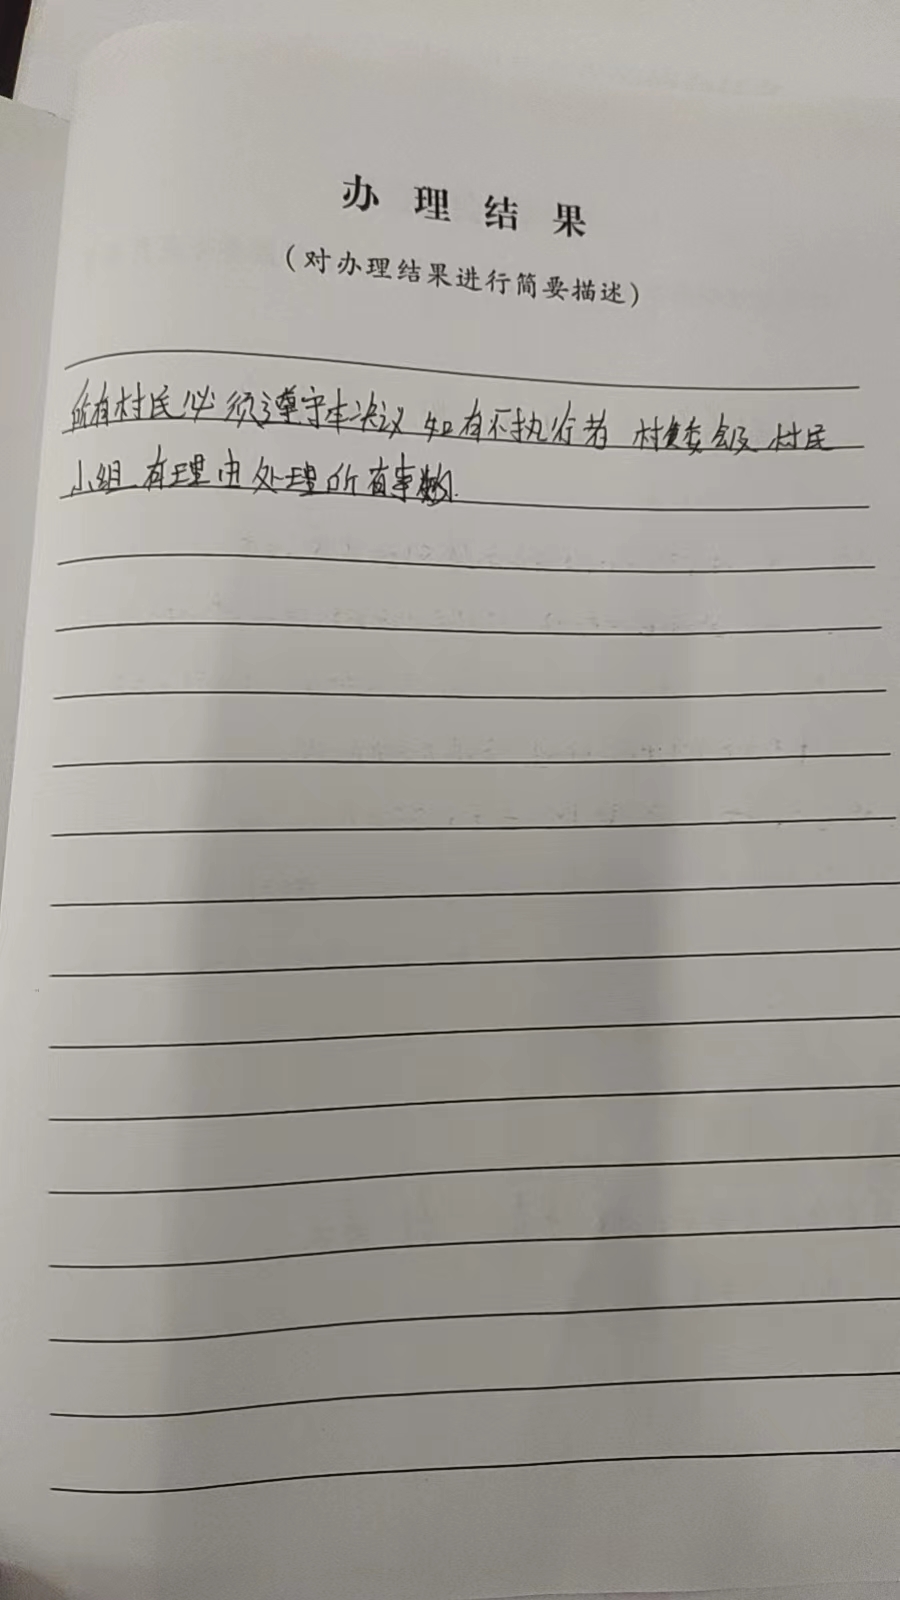 办理结果
(对办理结果进行简要描述)
所有村民必须遵守本决议 如有不执行者 村委会及村民
小组有理由处理所有事